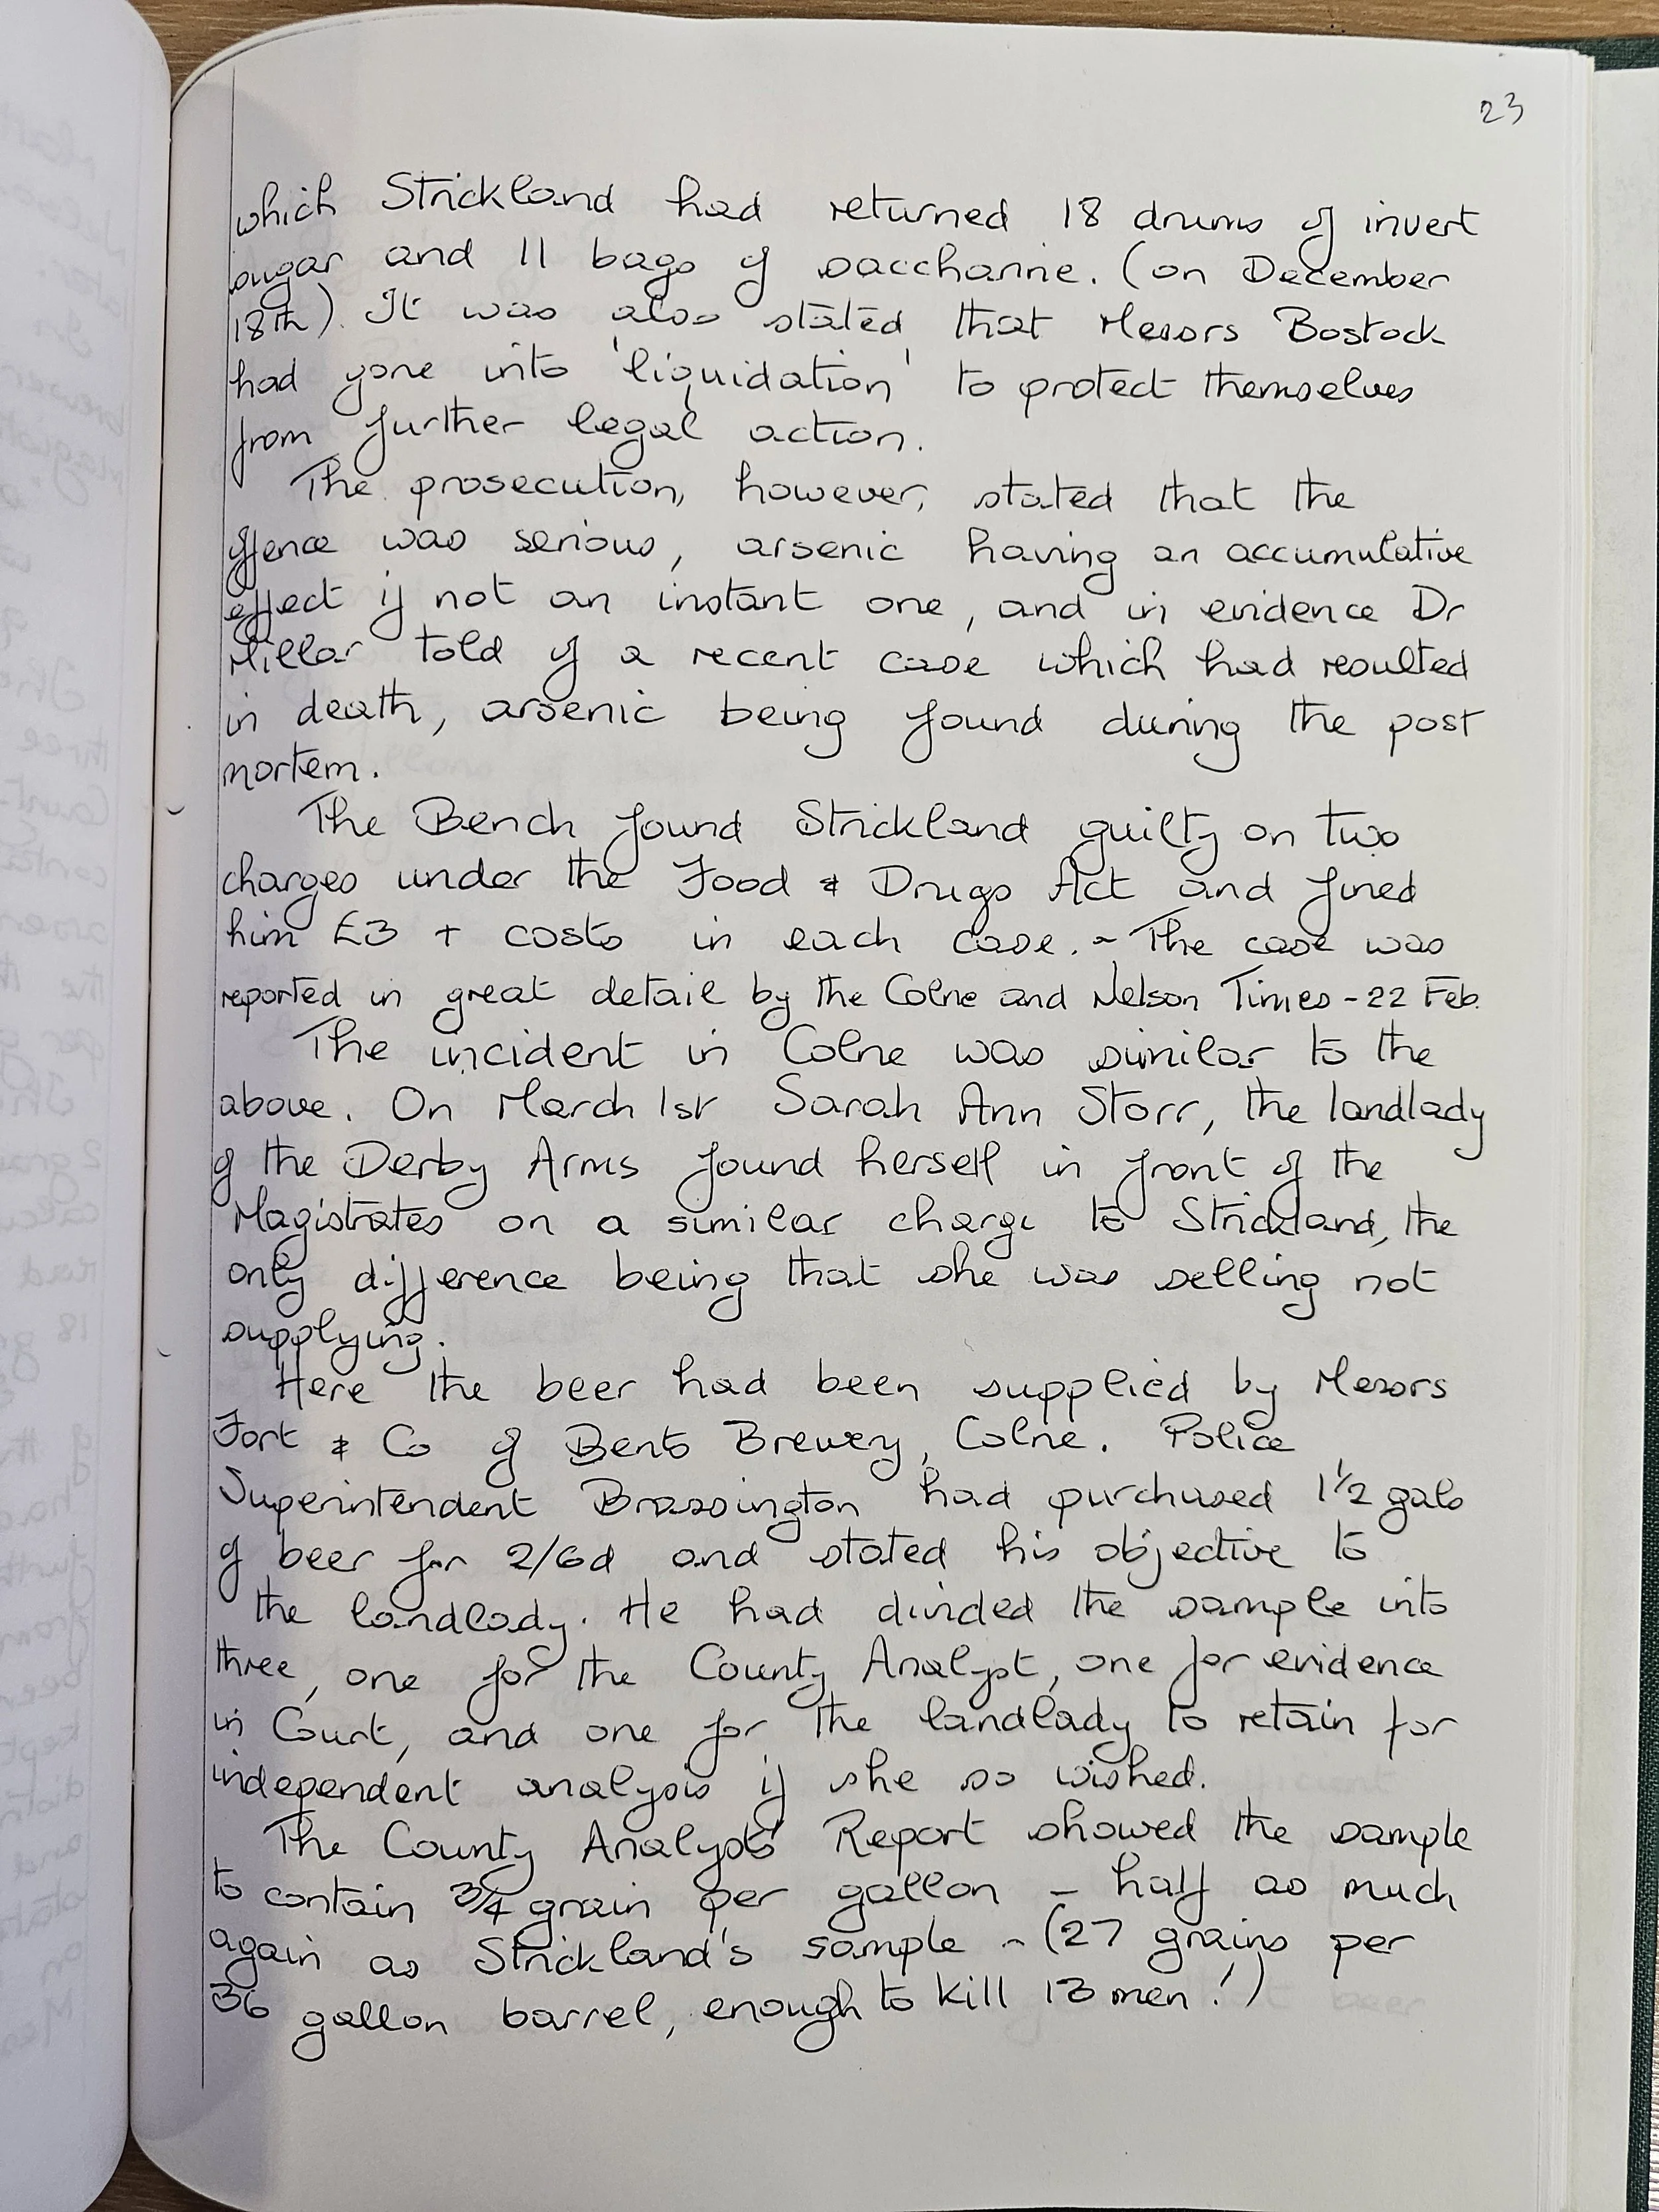 23
which Strickland had returned 18 drums of invert
sugar and 11 bags of saccharine. (on December
18th). It was also stated that Messrs Bostock
had gone into 'liquidation' to protect themselves
from further legal action.
The prosecution, however, stated that the
offence was serious, arsenic having an accumulative
effect if not an instant one, and in evidence Dr
Millar told of a recent case which had resulted
in death, arsenic being found during the post
mortem.
The Bench found Strickland guilty on two
charges under the Food & Drugs Act and fined
him £3 + costs in each case. - The case was
reported in great detail by the Colne and Nelson Times - 22 Feb.
The incident in Colne was similar to the
above. On March 1st Sarah Ann Storr, the landlady
of the Derby Arms found herself in front of the
Magistrates on a similar charge to Strickland, the
only difference being that she was selling not
supplying.
Here the beer had been supplied by Messrs
Fort & Co of Bents Brewery, Colne. Police
Superintendent Brassington had purchased 1½ gals
of beer for 2/6d and stated his objective to
the landlady. He had divided the sample into
three, one for the County Analyst, one for evidence
in Court, and one for the landlady to retain for
independent analysis if she so wished.
The County Analysts' Report showed the sample
to contain 3/4 grain per gallon - half as much
again as Strickland's sample - (27 grains per
36 gallon barrel, enough to kill 13 men!)